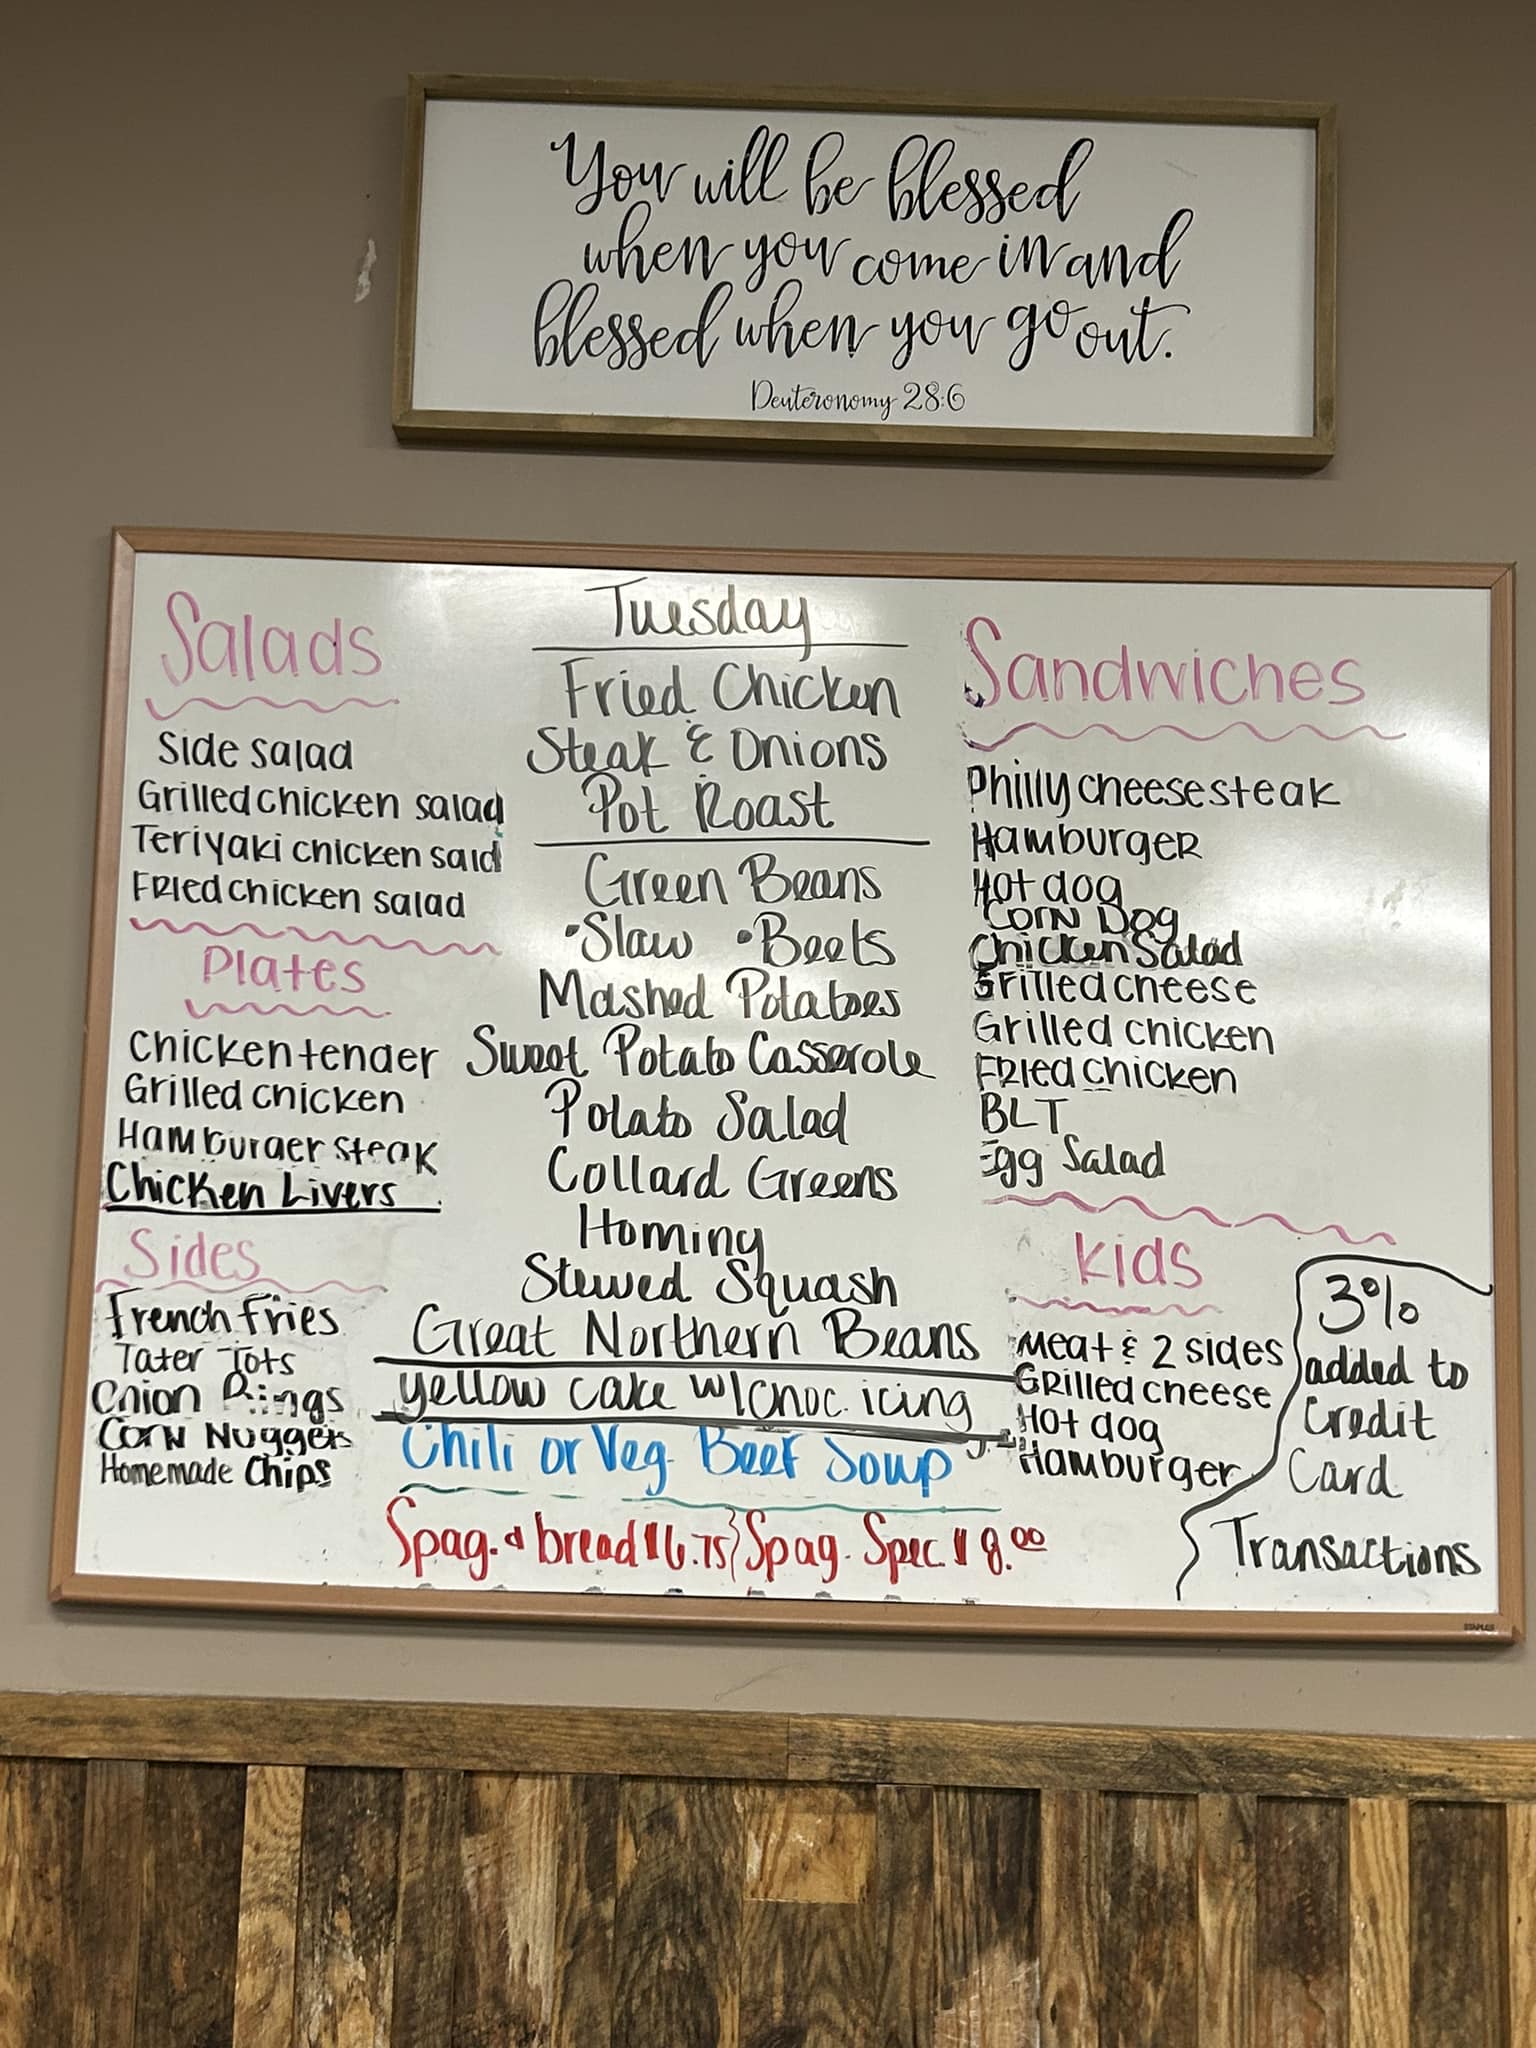 You will be blessed
when you come in and
blessed when you go out.
Deuteronomy 28:6
Salads
Side salad
Grilled chicken salad
Teriyaki chicken sald
Fried chicken salad
Plates
Chicken tender
Grilled chicken
Hamburger steak
Chicken Livers
Sides
French Fries
Tater Tots
Onion Rings
Corn Nuggets
Homemade Chips
Tuesday
Fried Chicken
Steak & Onions
Pot Roast
Green Beans
• Slaw • Beets
Mashed Potatoes
Sweet Potato Casserole
Potato Salad
Collard Greens
Hominy
Stewed Squash
Great Northern Beans
yellow cake w/choc. icing
Chili or Veg. Beef Soup
Spag. & bread $6.75 } Spag. Spec. $8.00
Sandwiches
Philly cheesesteak
Hamburger
Hot dog
Corn Dog
Chicken Salad
Grilled cheese
Grilled chicken
Fried chicken
BLT
Egg Salad
Kids
Meat & 2 sides
Grilled cheese
Hot dog
Hamburger
3%
added to
Credit
Card
Transactions
STAPLES